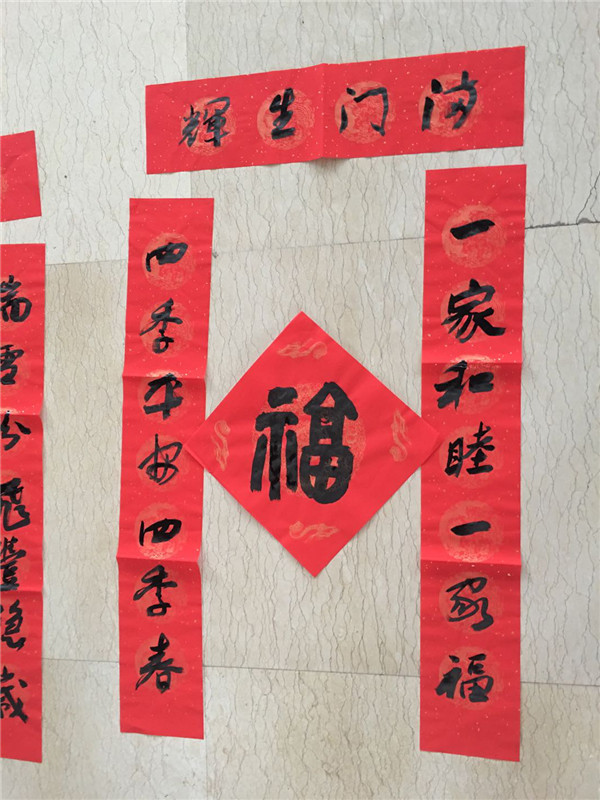 满门生輝
一家和睦一家福
四季平安四季春
福
瑞雪纷飛豐歲